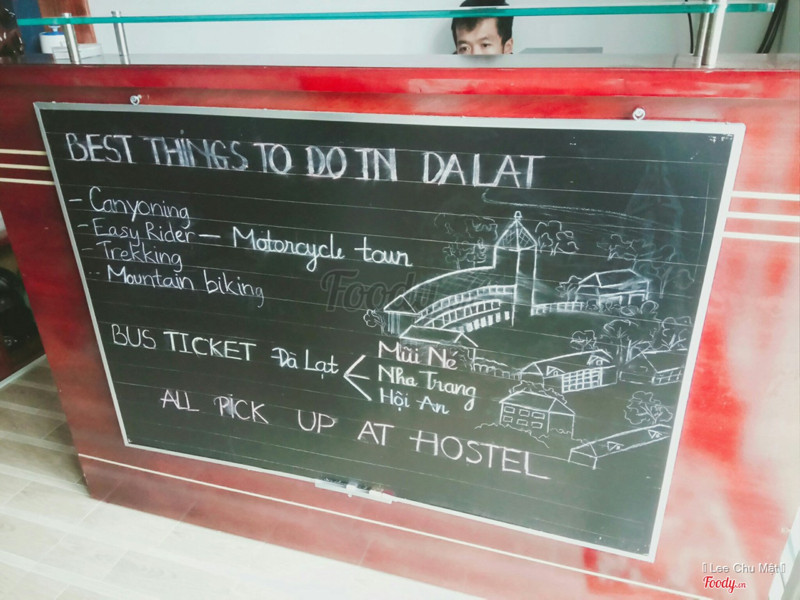 BEST THINGS TO DO IN DALAT
- Canyoning
- Easy Rider — Motorcycle tour
- Trekking
- Mountain biking
Foody
BUS TICKET Đà Lạt < Mũi Né
Nha Trang
Hội An
ALL PICK UP AT HOSTEL
Lee Chu Mêt
Foody.vn